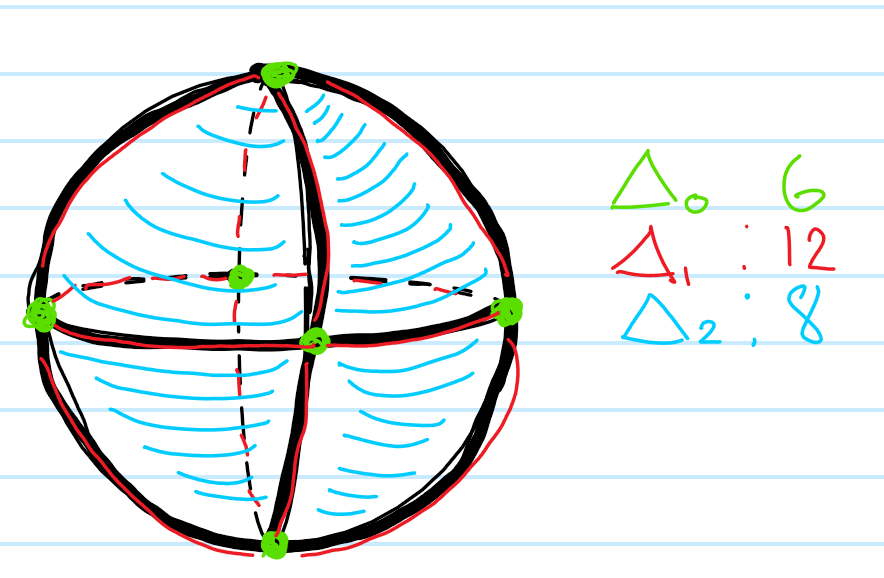 Δ₀ 6
Δ₁ : 12
Δ₂ : 8